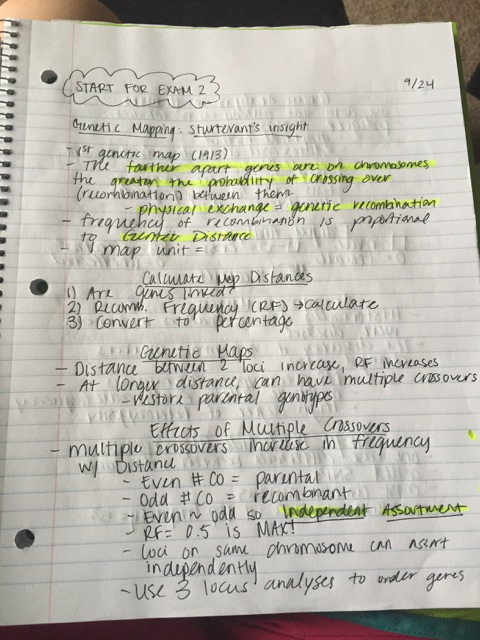 START FOR EXAM 2
9/24
Genetic Mapping: Sturtevant's insight
- 1st genetic map (1913)
- The farther apart genes are on chromosomes,
the greater the probability of crossing over
(recombination) between them
- physical exchange = genetic recombination
- frequency of recombination is proportional
to Genetic Distance
- map unit =
Calculate Map Distances
1) Are genes linked?
2) Recomb. Frequency (RF) → calculate
3) Convert to percentage
Genetic Maps
- Distance between 2 loci increase, RF increases
- At longer distance, can have multiple crossovers
- restore parental genotypes
Effects of Multiple Crossovers
- multiple crossovers increase in frequency
w/ Distance
- Even # CO = parental
- Odd # CO = recombinant
- Even ~ odd so Independent Assortment
- RF = 0.5 is MAX!
- Loci on same chromosome can assort
independently
- Use 3 locus analyses to order genes